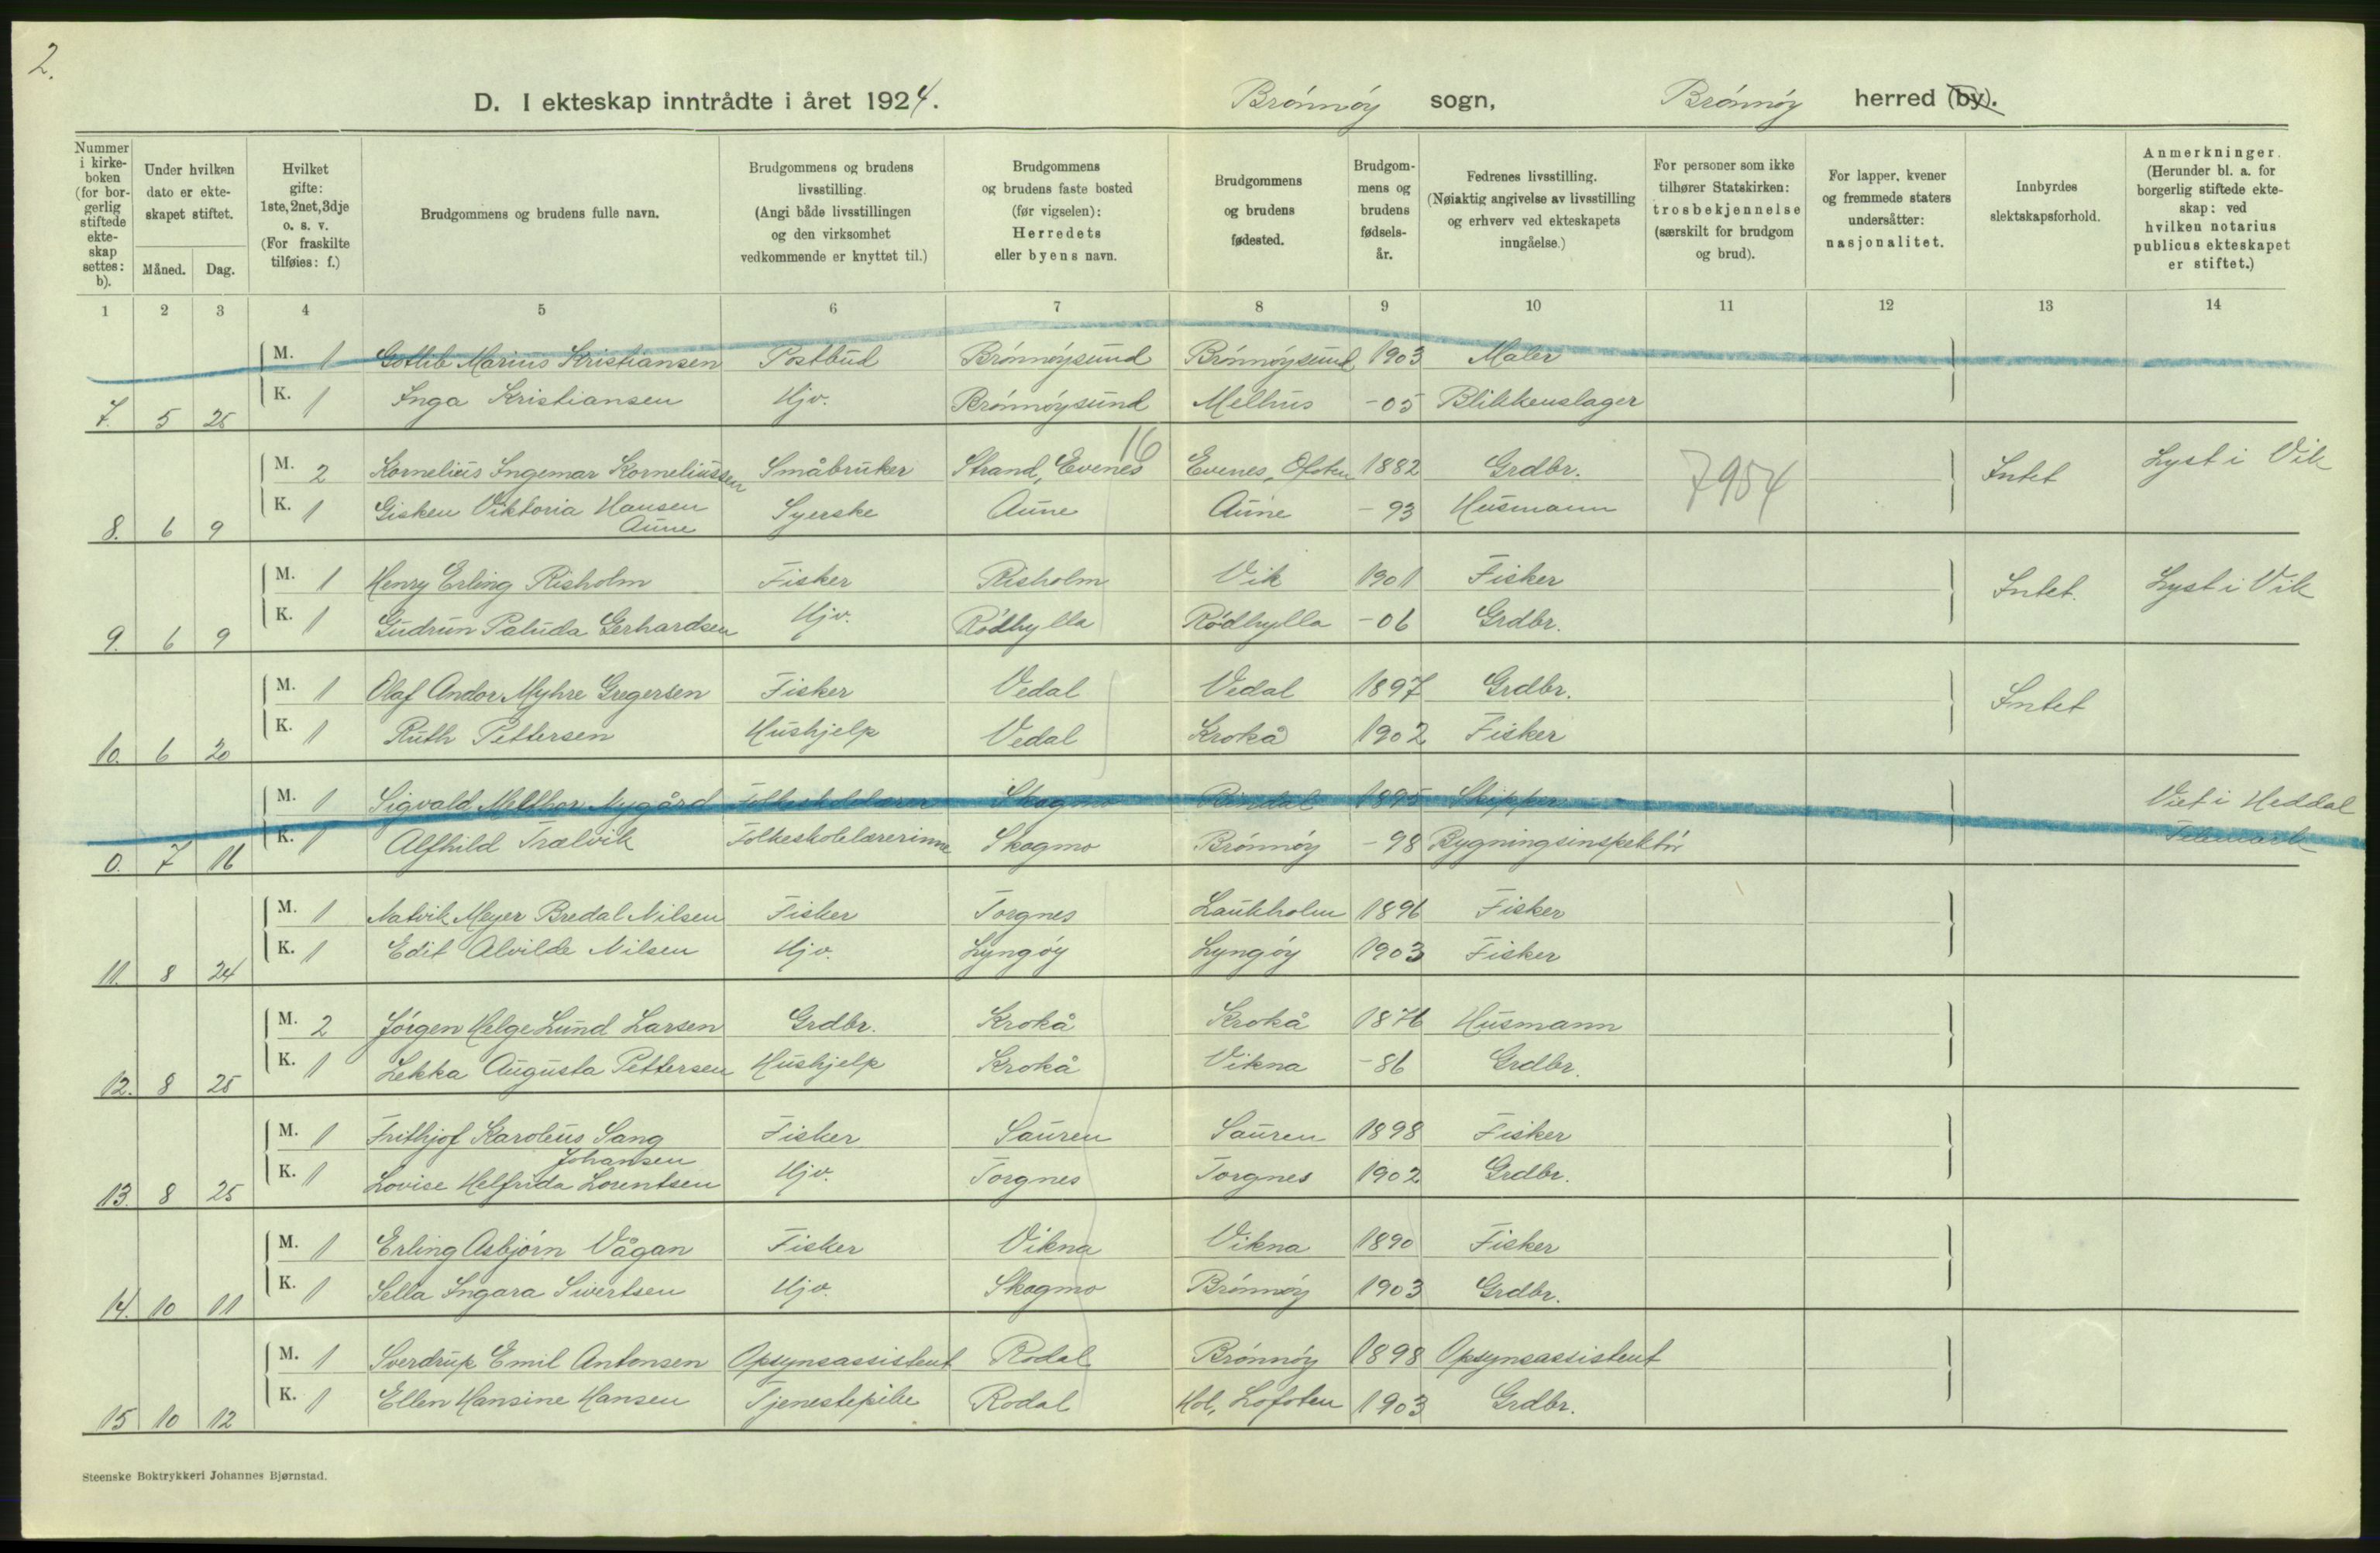 2.
D. I ekteskap inntrådte i året 1924.
Brönnöy sogn, Brönnöy herred (by).
Nummer i kirkeboken (for borgerlig stiftede ekteskap settes: b).
Under hvilken dato er ekteskapet stiftet.
Måned. Dag.
Hvilket gifte: 1ste, 2net, 3dje o. s. v. (For fraskilte tilføies: f.)
Brudgommens og brudens fulle navn.
Brudgommens og brudens livsstilling. (Angi både livsstillingen og den virksomhet vedkommende er knyttet til.)
Brudgommens og brudens faste bosted (før vigselen): Herredets eller byens navn.
Brudgommens og brudens fødested.
Brudgommens og brudens fødselsår.
Fedrenes livsstilling. (Nøiaktig angivelse av livsstilling og erhverv ved ekteskapets inngåelse.)
For personer som ikke tilhører Statskirken: trosbekjennelse (særskilt for brudgom og brud).
For lapper, kvener og fremmede staters undersåtter: nasjonalitet.
Innbyrdes slektskapsforhold.
Anmerkninger. (Herunder bl. a. for borgerlig stiftede ekteskap: ved hvilken notarius publicus ekteskapet er stiftet.)
1 2 3 4 5 6 7 8 9 10 11 12 13 14
M. 1 Gotlib Marius Kristiansen Postbud Brönnöysund Brönnöysund 1903 Maler
K. 1 Inga Kristiansen Hjv. Brönnöysund Melhus -05 Blikkenslager
7. 5 25
16
M. 2 Kornelius Ingemar Korneliussen Småbruker Strand, Evenes Evenes, Ofoten 1882 Grdbr. 7954 Intet Lyst i Vik
K. 1 Gisken Viktoria Hansen Aune Syerske Aune Aune -93 Husmann
8. 6 9
M. 1 Henry Erling Risholm Fisker Risholm Vik 1901 Fisker Intet. Lyst i Vik
K. 1 Gudrun Paluda Gerhardsen Hjv. Rödhylla Rödhylla -06 Grdbr.
9. 6 9
M. 1 Olaf Andor Myhre Gregersen Fisker Vedal Vedal 1897 Grdbr. Intet
K. 1 Ruth Pettersen Hushjelp Vedal Krokå 1902 Fisker
10. 6 20
M. 1 Sigvald Melthor Nygård Folkeskolelærer Skogmo Bindal 1895 Skipper Viet i Heddal
K. 1 Alfhild Trælvik Folkeskolelærerinne Skogmo Brönnöy -98 Bygningsinspektör Telemark
0. 7 16
M. 1 Natvik Meyer Bredal Nilsen Fisker Torgnes Laukholm 1896 Fisker
K. 1 Edit Alvilde Nilsen Hjv. Lyngöy Lyngöy 1903 Fisker
11. 8 24
M. 2 Jörgen Helge Lund Larsen Grdbr. Krokå Krokå 1876 Husmann
K. 1 Lekka Augusta Pettersen Hushjelp Krokå Vikna -86 Grdbr.
12. 8 25
M. 1 Frithjof Karoleus Sang Johansen Fisker Sauren Sauren 1898 Fisker
K. 1 Lovise Helfrida Lorentsen Hjv. Torgnes Torgnes 1902 Grdbr.
13. 8 25
M. 1 Erling Asbjörn Vågan Fisker Vikna Vikna 1890 Fisker
K. 1 Sella Ingara Sivertsen Hjv. Skogmo Brönnöy 1903 Grdbr.
14. 10 11
M. 1 Sverdrup Emil Antonsen Opsynsassistent Rodal Brönnöy 1898 Opsynsassistent
K. 1 Ellen Hansine Hansen Tjenestepike Rodal Hol, Lofoten 1903 Grdbr.
15 10 12
Steenske Boktrykkeri Johannes Bjørnstad.